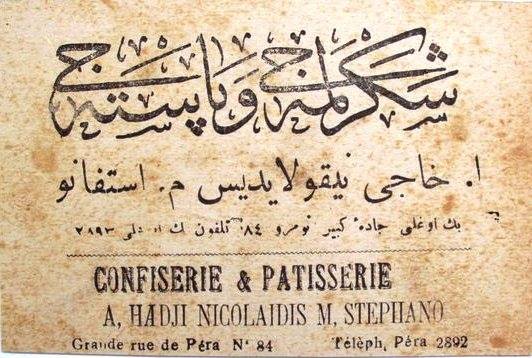 شكرلمه جى و پاسته جى
ا. خاجى نيقولايديس م. استفانو
بك اوغلى جاده كبير نومرو ٨٤ تلفون بك اوغلى ٢٨٩٢
CONFISERIE & PATISSERIE
A, HADJI NICOLAIDIS M, STEPHANO
Grande rue de Péra N° 84 Télèph, Péra 2892